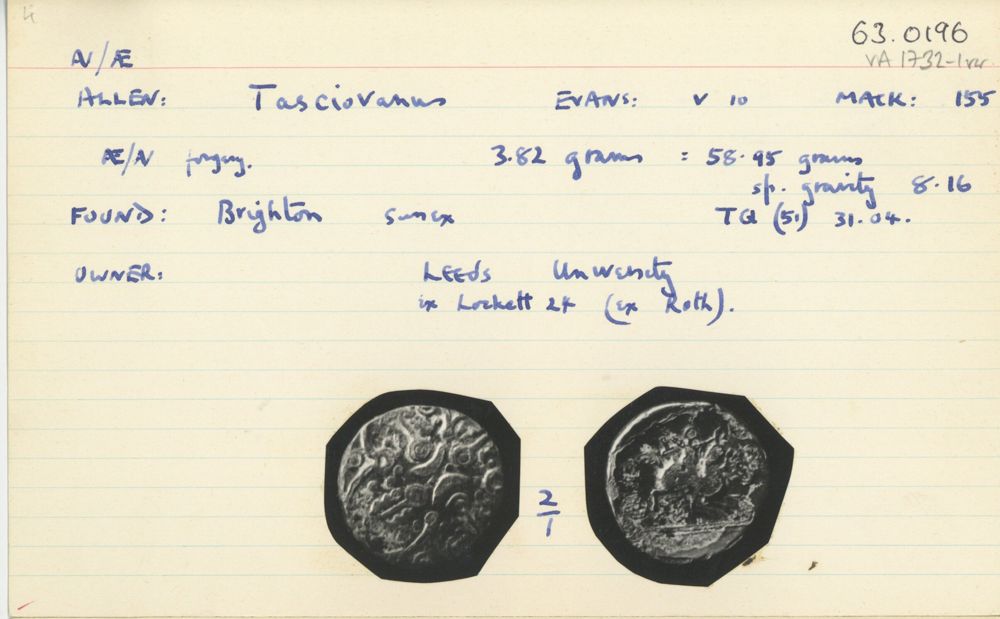 63.0196
VA 1732-1var
AV/Æ
ALLEN: Tasciovanus EVANS: V 10 MACK: 155
Æ/AV forgery. 3.82 grams = 58.95 grams
sp. gravity 8.16
FOUND: Brighton Sussex TQ (51) 31.04.
OWNER: LEEDS University
ex Lockett 24 (ex Roth).
2
1